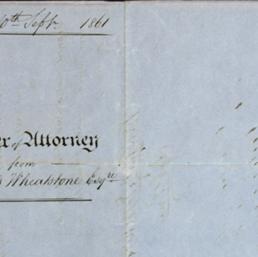 10th Sept. 1861
er of Attorney
from
Wheatstone Esqre